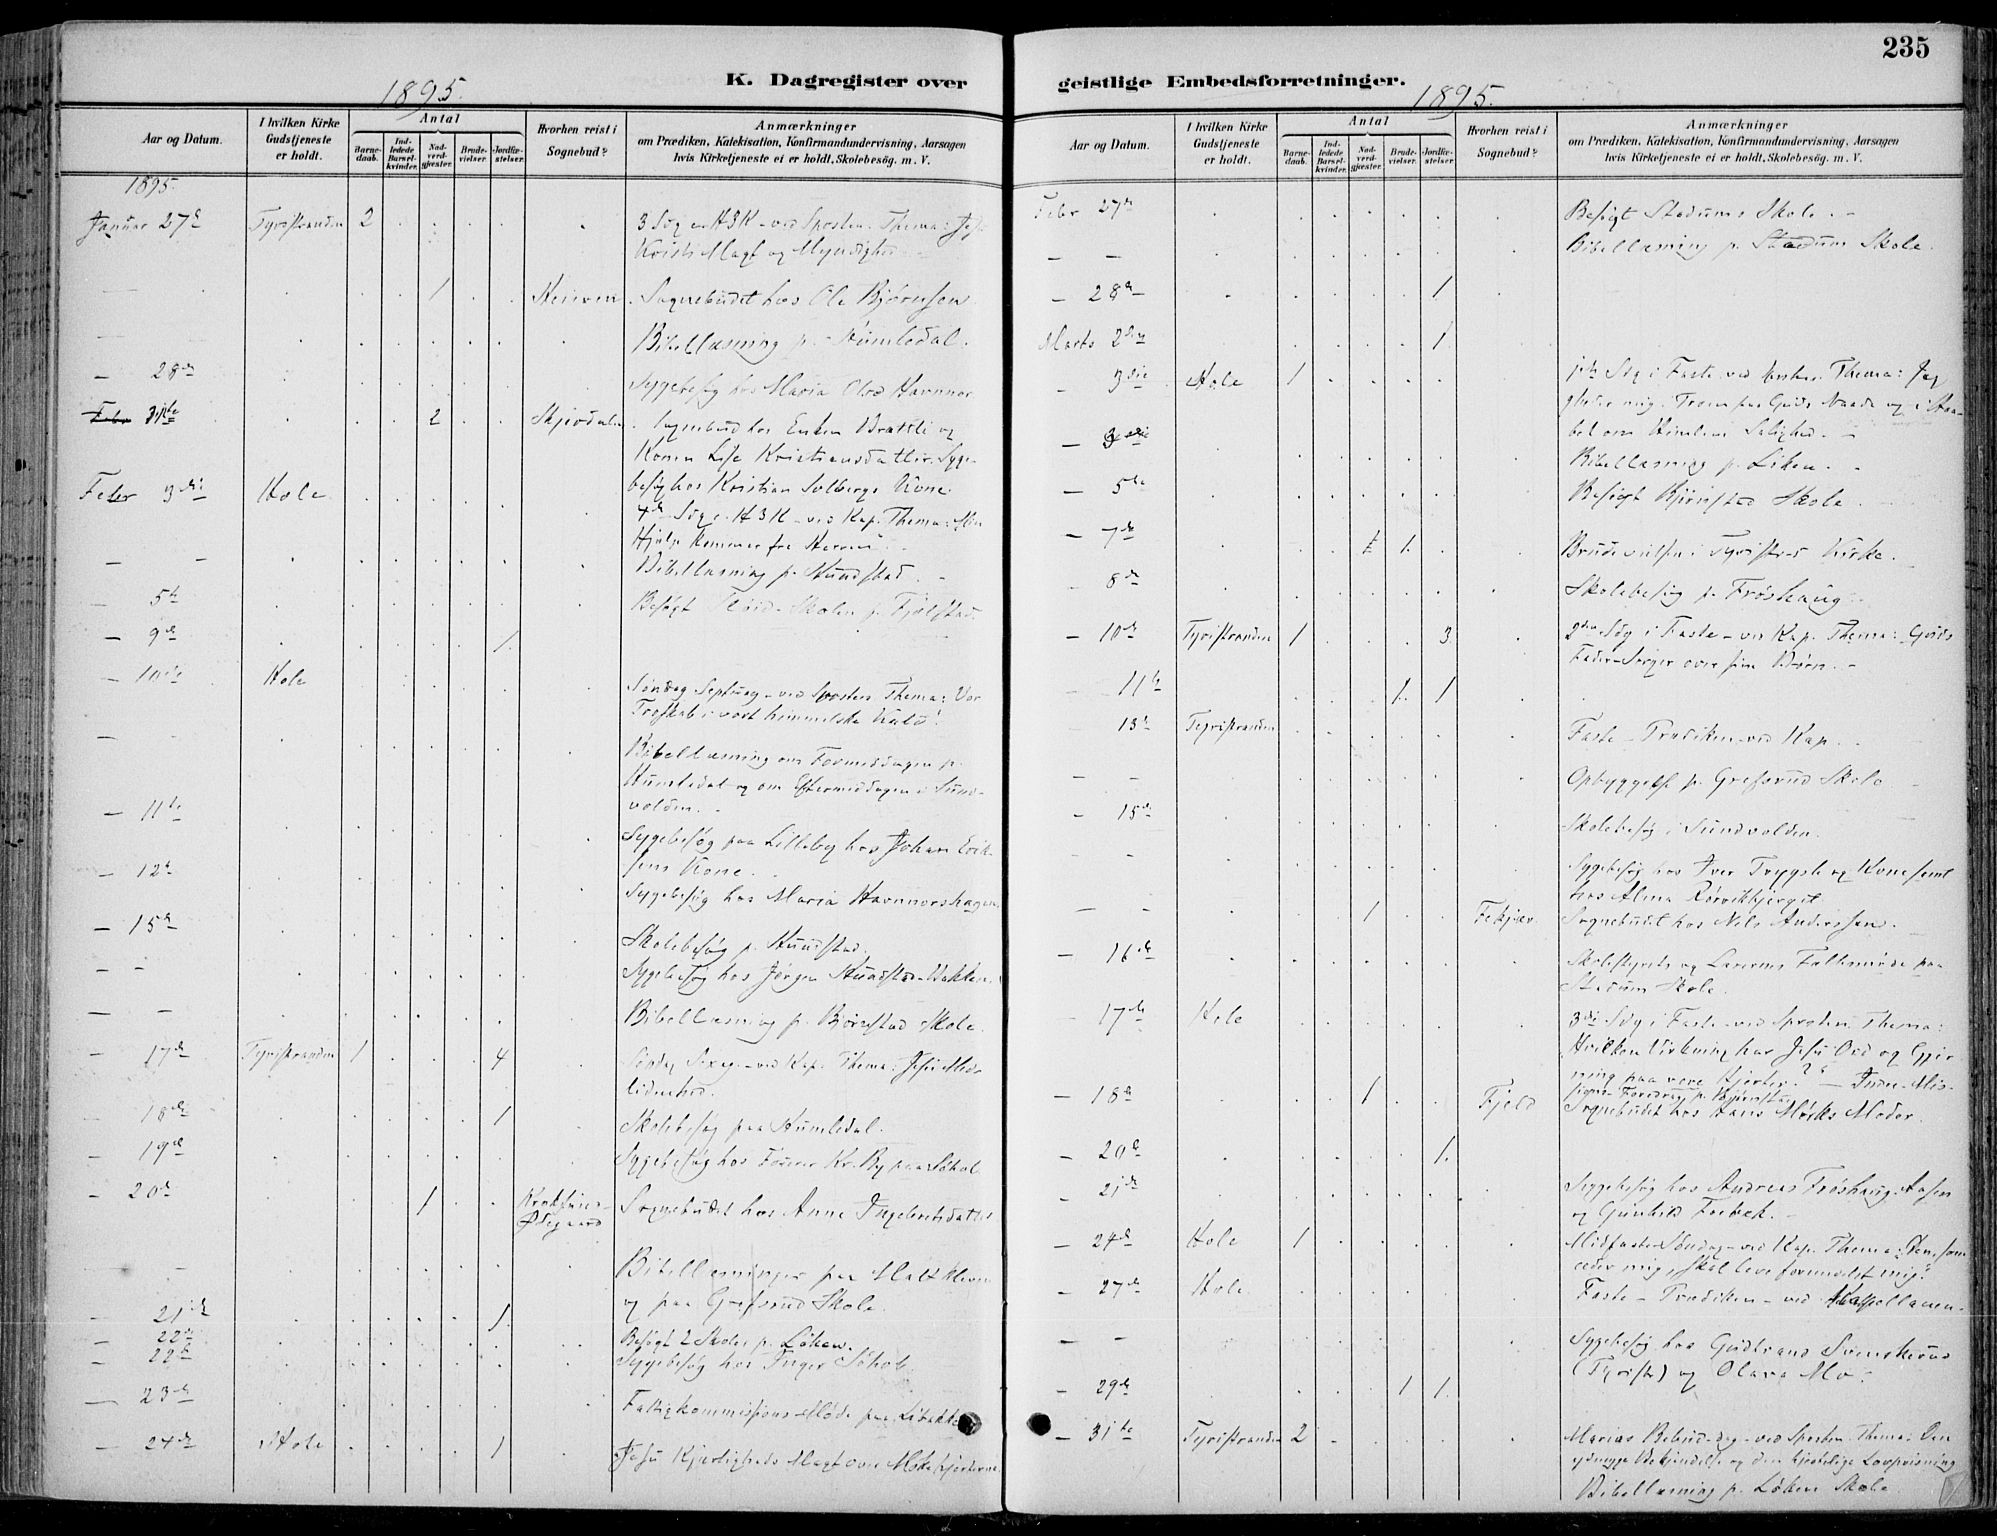 235
K. Dagregister over
1895.
Aar og Datum.
I hvilken Kirke
Gudstjeneste
er holdt.
Antal
Barne-
daab.
Ind-
ledede
Barsel-
kvinder.
Nad-
verd-
gjæster.
Brude-
vielser.
Jordfæ-
stelser.
Hvorhen reist i
Sognebud?
Anmærkninger
om Prædiken, Katekisation, Konfirmandundervisning, Aarsagen
hvis Kirketjeneste ei er holdt, Skolebesøg. m. V.
1895.
Januar 27de Tyristranden 2 3 Søg e. H3K - ved Sposten. Thema: Jesu
Kristi Magt og Myndighed
1 Sognebudet hos Ole Bjørnsen
Bibellæsning p. Humledal.
- 28de Sygebesøg hos Maria Olsd Havnnor
31te 2 Skjærdalen Sognebud hos Enken Brattli og
Konen Lise Kristiansdatter. Syge-
Febr 3die Hole besøg hos Kristian Solbergs Kone.
4de Søg e. H3K - ved Kap. Thema: Min
Hjælp kommer fra Herren
- - Bibellæsning p. Hundstad.
- 5te Besøgt Skolen p. Fjelstad.
- 9de 1.
- 10de Hole Søndag Septuag - ved Sposten Thema: Vor
Troskab i vort himmelske Kald.
- - Bibellæsning om Formiddagen p.
Humledal og om Eftermiddagen i Sund-
volden.
- 11te Sygebesøg paa Lilleby hos Johan Erik-
sens Kone.
- 12te Sygebesøg hos Maria Havnnorshagen
- 15de Skolebesøg p. Hundstad.
- - Sygebesøg hos Jørgen Hundstad-Bakken
- - Bibellæsning p. Bjørnstad Skole.
- 17de Tyristranden 1 4 Søndag Sexag. - ved Kap. Thema: Jesu Med-
lidenhed.
- 18de 1 Skolebesøg paa Humledal.
- 19de Sygebesøg hos Kr. By paa Søhol
- 20de 1 Krokskogs-
Ødegaard Sognebudet hos Anne Ingebretsdatter
- - Bibellæsninger paa
og paa Grefsrud Skole.
- 21de 1.
- 22de Besøgt 2 Skoler p. Løken.
- 22de Sygebesøg hos Inger Søhol
- 23de Fattigkommissions-Møde paa Libakke
- 24de Hole 1 Jesu Kjærligheds Magt over Menneskehjerterne
geistlige Embedsforretninger.
1895.
Aar og Datum.
I hvilken Kirke
Gudstjeneste
er holdt.
Antal
Barne-
daab.
Ind-
ledede
Barsel-
kvinder.
Nad-
verd-
gjæster.
Brude-
vielser.
Jordfæ-
stelser.
Hvorhen reist i
Sognebud?
Anmærkninger
om Prædiken, Katekisation, Konfirmandundervisning, Aarsagen
hvis Kirketjeneste ei er holdt, Skolebesøg. m. V.
Febr 27de Besøgt Stadums Skole.
- - Bibellæsning p. Stadum Skole.
- 28de 1
Marts 2den 1
- 3die Hole 1 1ste Søg i Faste - ved Thema: Jeg
glæder mig. Troen paa Guds Naade og i Haa-
bet om Himlens Salighed.
- 3die Bibellæsning p. Løken.
- 5te Besøgt Bjørnstad Skole.
- 7de 1. Brudevielse i Tyristr-s Kirke.
- 8de Skolebesøg p. Frøshaug
- 10de Tyristranden 1 3 2den Søg i Faste - ved Kap. Thema: Guds
Fader-Sorger over sine Børn.
- 11te 1. 1
13de Tyristranden Faste-Prædiken ved Kap.
- - Opbyggelse p. Grefsrud Skole
- 15de Skolebesøg i Sundvolden.
- - Sygebesøg hos Iver Trygsle og Kone samt
hos Alma Rørvikbjerget
- - 1 Fekjær. Sognebudet hos Nils Anderssen.
- 16de Skolestyrets og Lærernes Fællesmøde paa
Stadum Skole.
- 17de Hole 3die Søg i Faste - ved Sposten Thema:
Hvilken Virkning har Jesu Ord og Gjer-
ning paa vore Hjerter? - Indre-Mis-
sions-Foredrag p. Bjørnstad
- 18de 1 Fjeld Sognebudet hos Hans Mørks Moder.
- 20de 1.
- 21de Sygebesøg hos Andreas Frøshaug-Aasen
og Gunhild Færbæk.
- 24de Hole 1 Midfaste-Søndag - ved Kap. Thema: Den, som
æder mig, skal leve formedelst mig.
- 27de Hole. Faste-Prædiken - ved Kapellanen.
- - Sygebesøg hos Gudbrand Svenskerud
(Tyristr) og Olava Mo.
- 29de 1 1.
- 31te Tyristranden 2 Marias Bebud.-dag - ved Sposten. Thema: Den
ydmyge Bekjendelse og den hjertelige Lovprisning
Bibellæsning p. Løken Skole